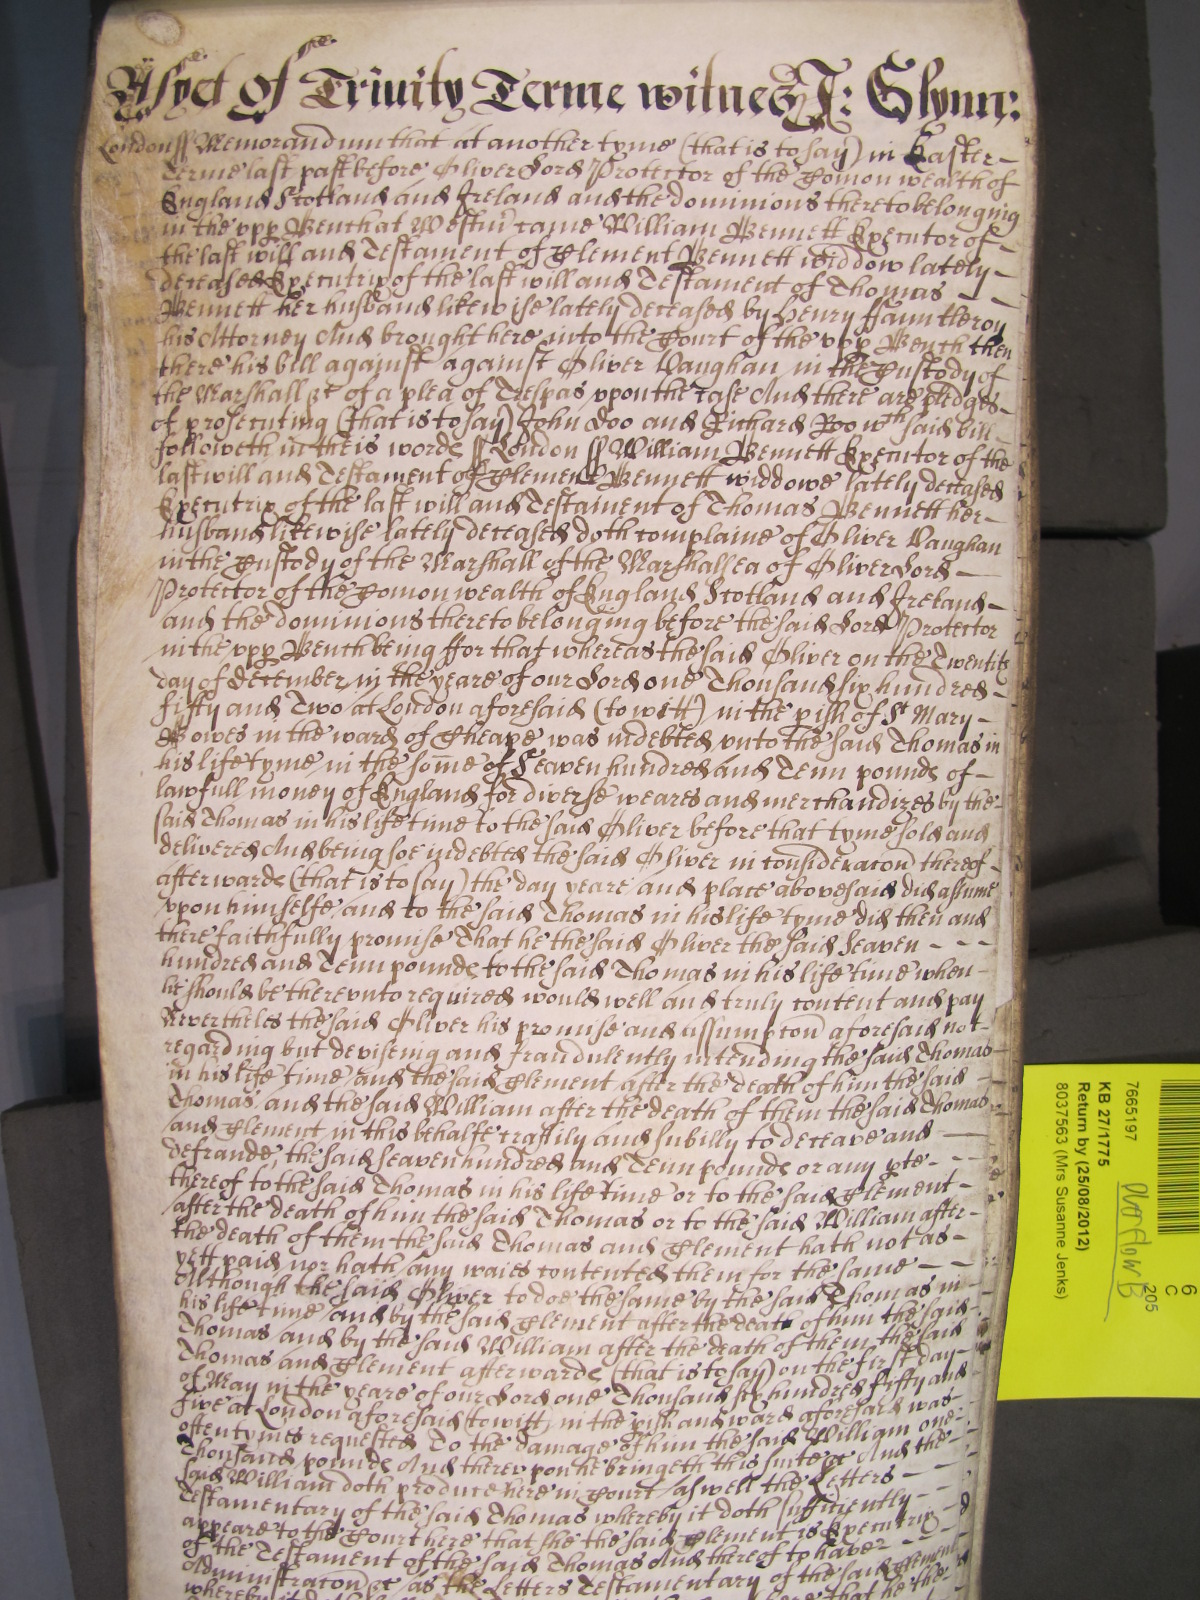 As yet of Trinity Terme witnes J: Glynn:
London ss Memorandum that at another tyme (that is to say) in Easter
Terme last past before Oliver Lord Protector of the Comon wealth of
England Scotland and Ireland and the dominions thereto belonging
in the upp Bench at Westm came William Bennett Executor of
the last will and Testament of Clement Bennett widdow lately
deceased Executrix of the last will and Testament of Thomas
Bennett her husband likewise lately deceased by Henry ffauntleroy
his Attorney And brought here into the Court of the upp Bench then
there his bill against against Oliver Vaughan in the Custody of
the Marshall &c of a plea of Trespas uppon the case And there are pledges
of prosecuting (that is to say) John Doo and Richard Roo wth said bill
followeth in theis words ss London ss William Bennett Executor of the
last will and Testament of Clement Bennett widdowe lately deceased
Executrix of the last will and Testament of Thomas Bennett her
husband likewise lately deceased doth complaine of Oliver Vaughan
in the Custody of the Marshall of the Marshallsea of Oliver Lord
Protector of the Comon wealth of England Scotland and Ireland
and the dominions thereto belonging before the said Lord Protector
in the upp Bench being ffor that whereas the said Oliver on the Twentith
day of December in the yeare of our Lord one Thousand six hundred
fifty and Two at London aforesaid (to witt) in the pish of St Mary
Bowes in the ward of Cheape was indebted unto the said Thomas in
his life tyme in the some of Seaven hundred and Tenn pounds of
lawfull money of England for diverse weares and merchandizes by the
said Thomas in his life time to the said Oliver before that tyme sold and
delivered And being soe indebted the said Oliver in consideracon thereof
afterwards (that is to say) the day yeare and place abovesaid did assume
upon himselfe and to the said Thomas in his life tyme did then and
there faithfully promise That he the said Oliver the said Seaven
hundred and Tenn pounds to the said Thomas in his life time when
he should be thereunto required would well and truly content and pay
Nevertheles the said Oliver his promise and assumpcon aforesaid not
regarding but deviseing and fraudulently intending the said Thomas
in his life time and the said Clement after the death of him the said
Thomas and the said William after the death of them the said Thomas
and Clement in this behalfe craftily and subtilly to deceave and
defraude, the said seaven hundred and Tenn pounds or any pte
thereof to the said Thomas in his life time or to the said Clement
after the death of him the said Thomas or to the said William after
the death of them the said Thomas and Clement hath not as
yett paid nor hath any waies contented them for the same
Although the said Oliver to doe the same by the said Thomas in
his life time and by the said Clement after the death of him the said
Thomas and by the said William after the death of them the said
Thomas and Clement afterwards (that is to say) on the first day
of May in the yeare of our Lord one Thousand six hundred fifty and
five at London aforesaid to witt in the pish and ward aforesaid was
oftentymes requested To the damage of him the said William one
Thousand pounds And thereupon he bringeth this suite &c And the
said William doth produce here in Court aswell the Letters
Testamentary of the said Thomas whereby it doth sufficiently
appeare to the Court here that she the said Clement is Executrix
of the Testament of the said Thomas And thereof to have
Administracon &c as the Letters Testamentary of the said Clement
whereby it doth here that he the
7665197
KB 27/1775
Return by (25/08/2012)
8037563 (Mrs Susanne Jenks)
Overflow B
205
C
6